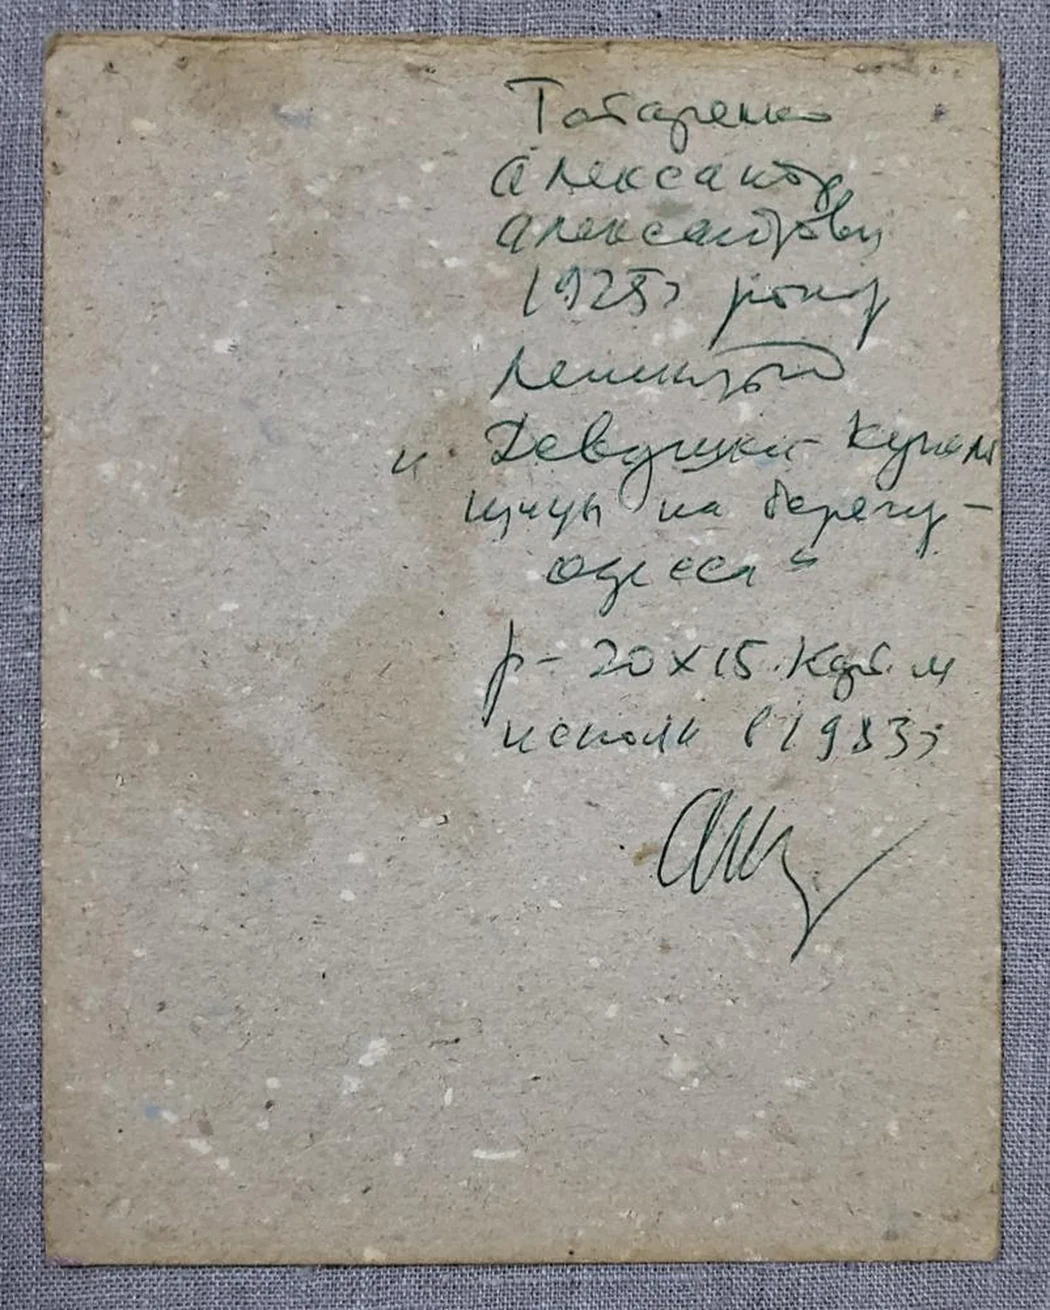 Татаренко
Александр
Александрович
1925г рожд
Ленинград
и. Девушки Купаль
щицы на берегу –
Одесса"
р – 20 х 15. Карт. м
исполн в 1983г